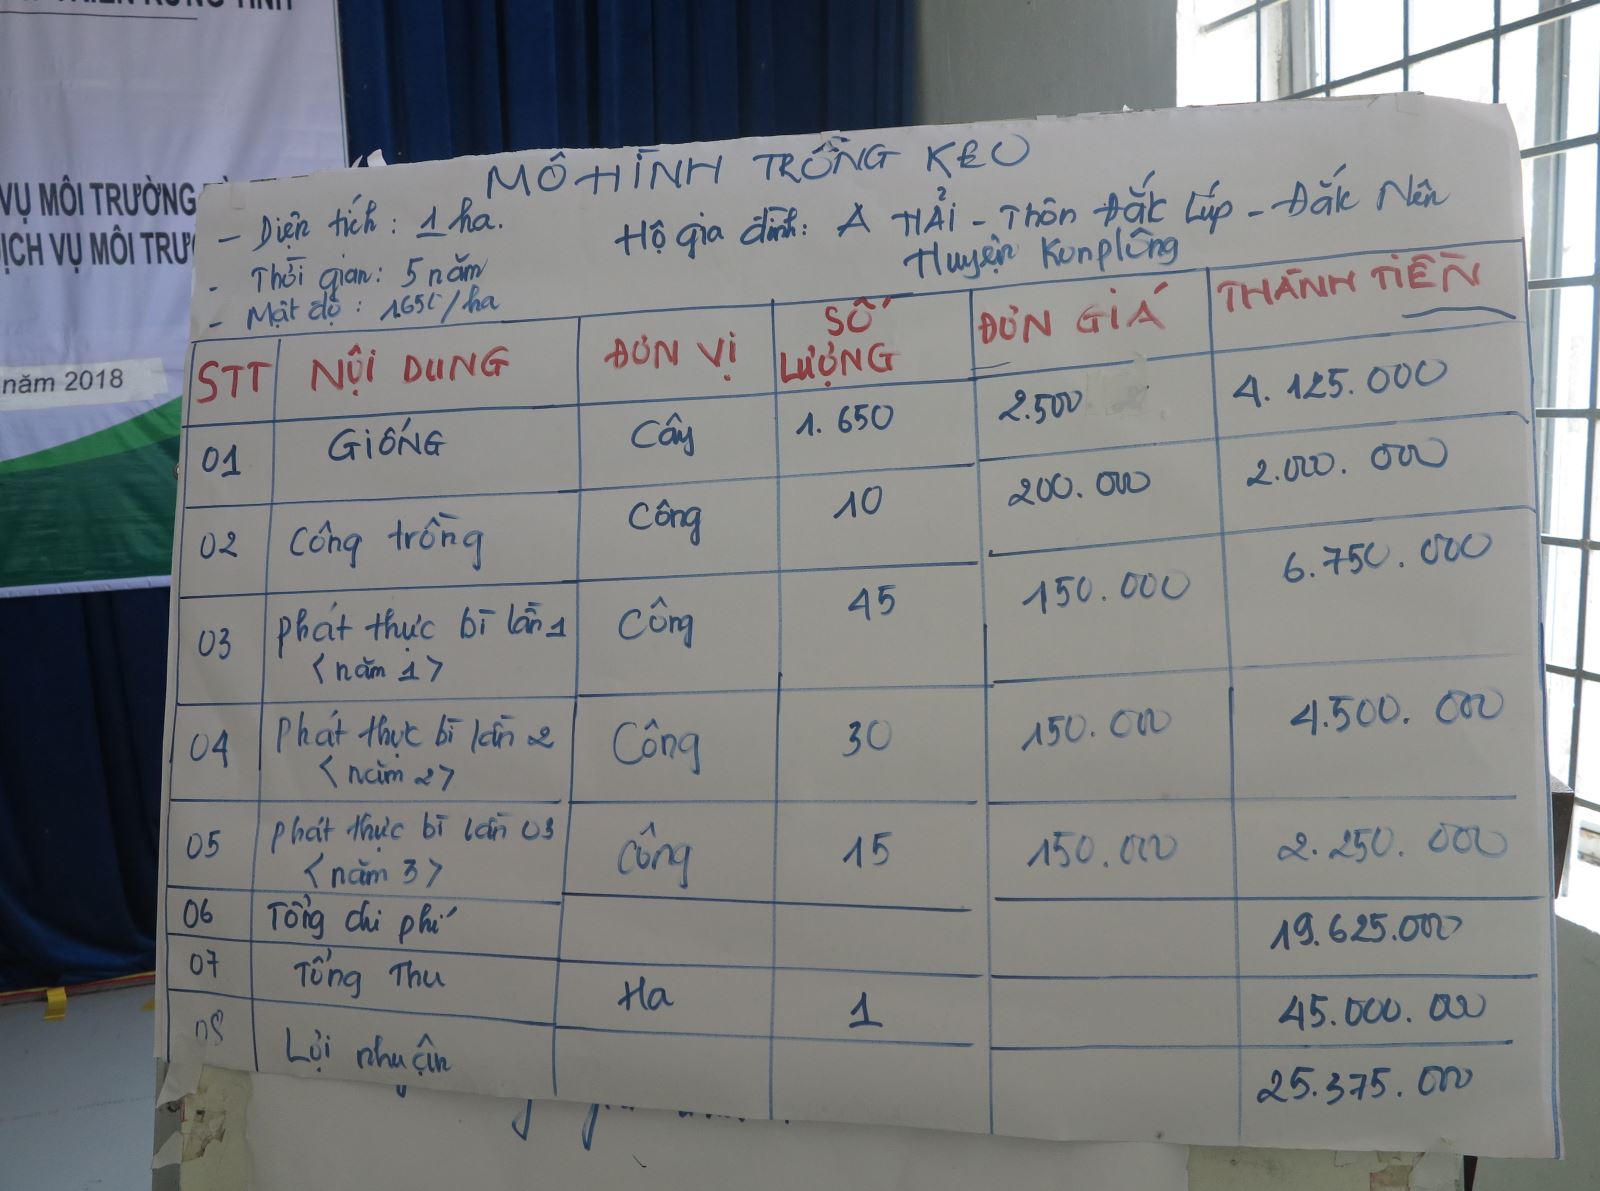 RỪNG TỈNH
VỤ MÔI TRƯỜNG
DỊCH VỤ MÔI TRƯ
năm 2018
MÔ HÌNH TRỒNG KEO
- Diện tích: 1 ha.
Hộ gia đình: A HẢI - Thôn Đắk Lúp - Đắk Nên
Huyện Konplông
- Thời gian: 5 năm
- Mật độ: /ha
STT NỘI DUNG ĐƠN VỊ SỐ LƯỢNG ĐƠN GIÁ THÀNH TIỀN
01 GIỐNG Cây 1.650 2.500 4.125.000
02 Công trồng Công 10 200.000 2.000.000
03 phát thực bì lần 1 Công 45 150.000 6.750.000
<năm 1>
04 phát thực bì lần 2 Công 30 150.000 4.500.000
<năm 2>
05 phát thực bì lần 03 Công 15 150.000 2.250.000
<năm 3>
06 Tổng chi phí 19.625.000
07 Tổng Thu Ha 1 45.000.000
08 Lợi nhuận 25.375.000